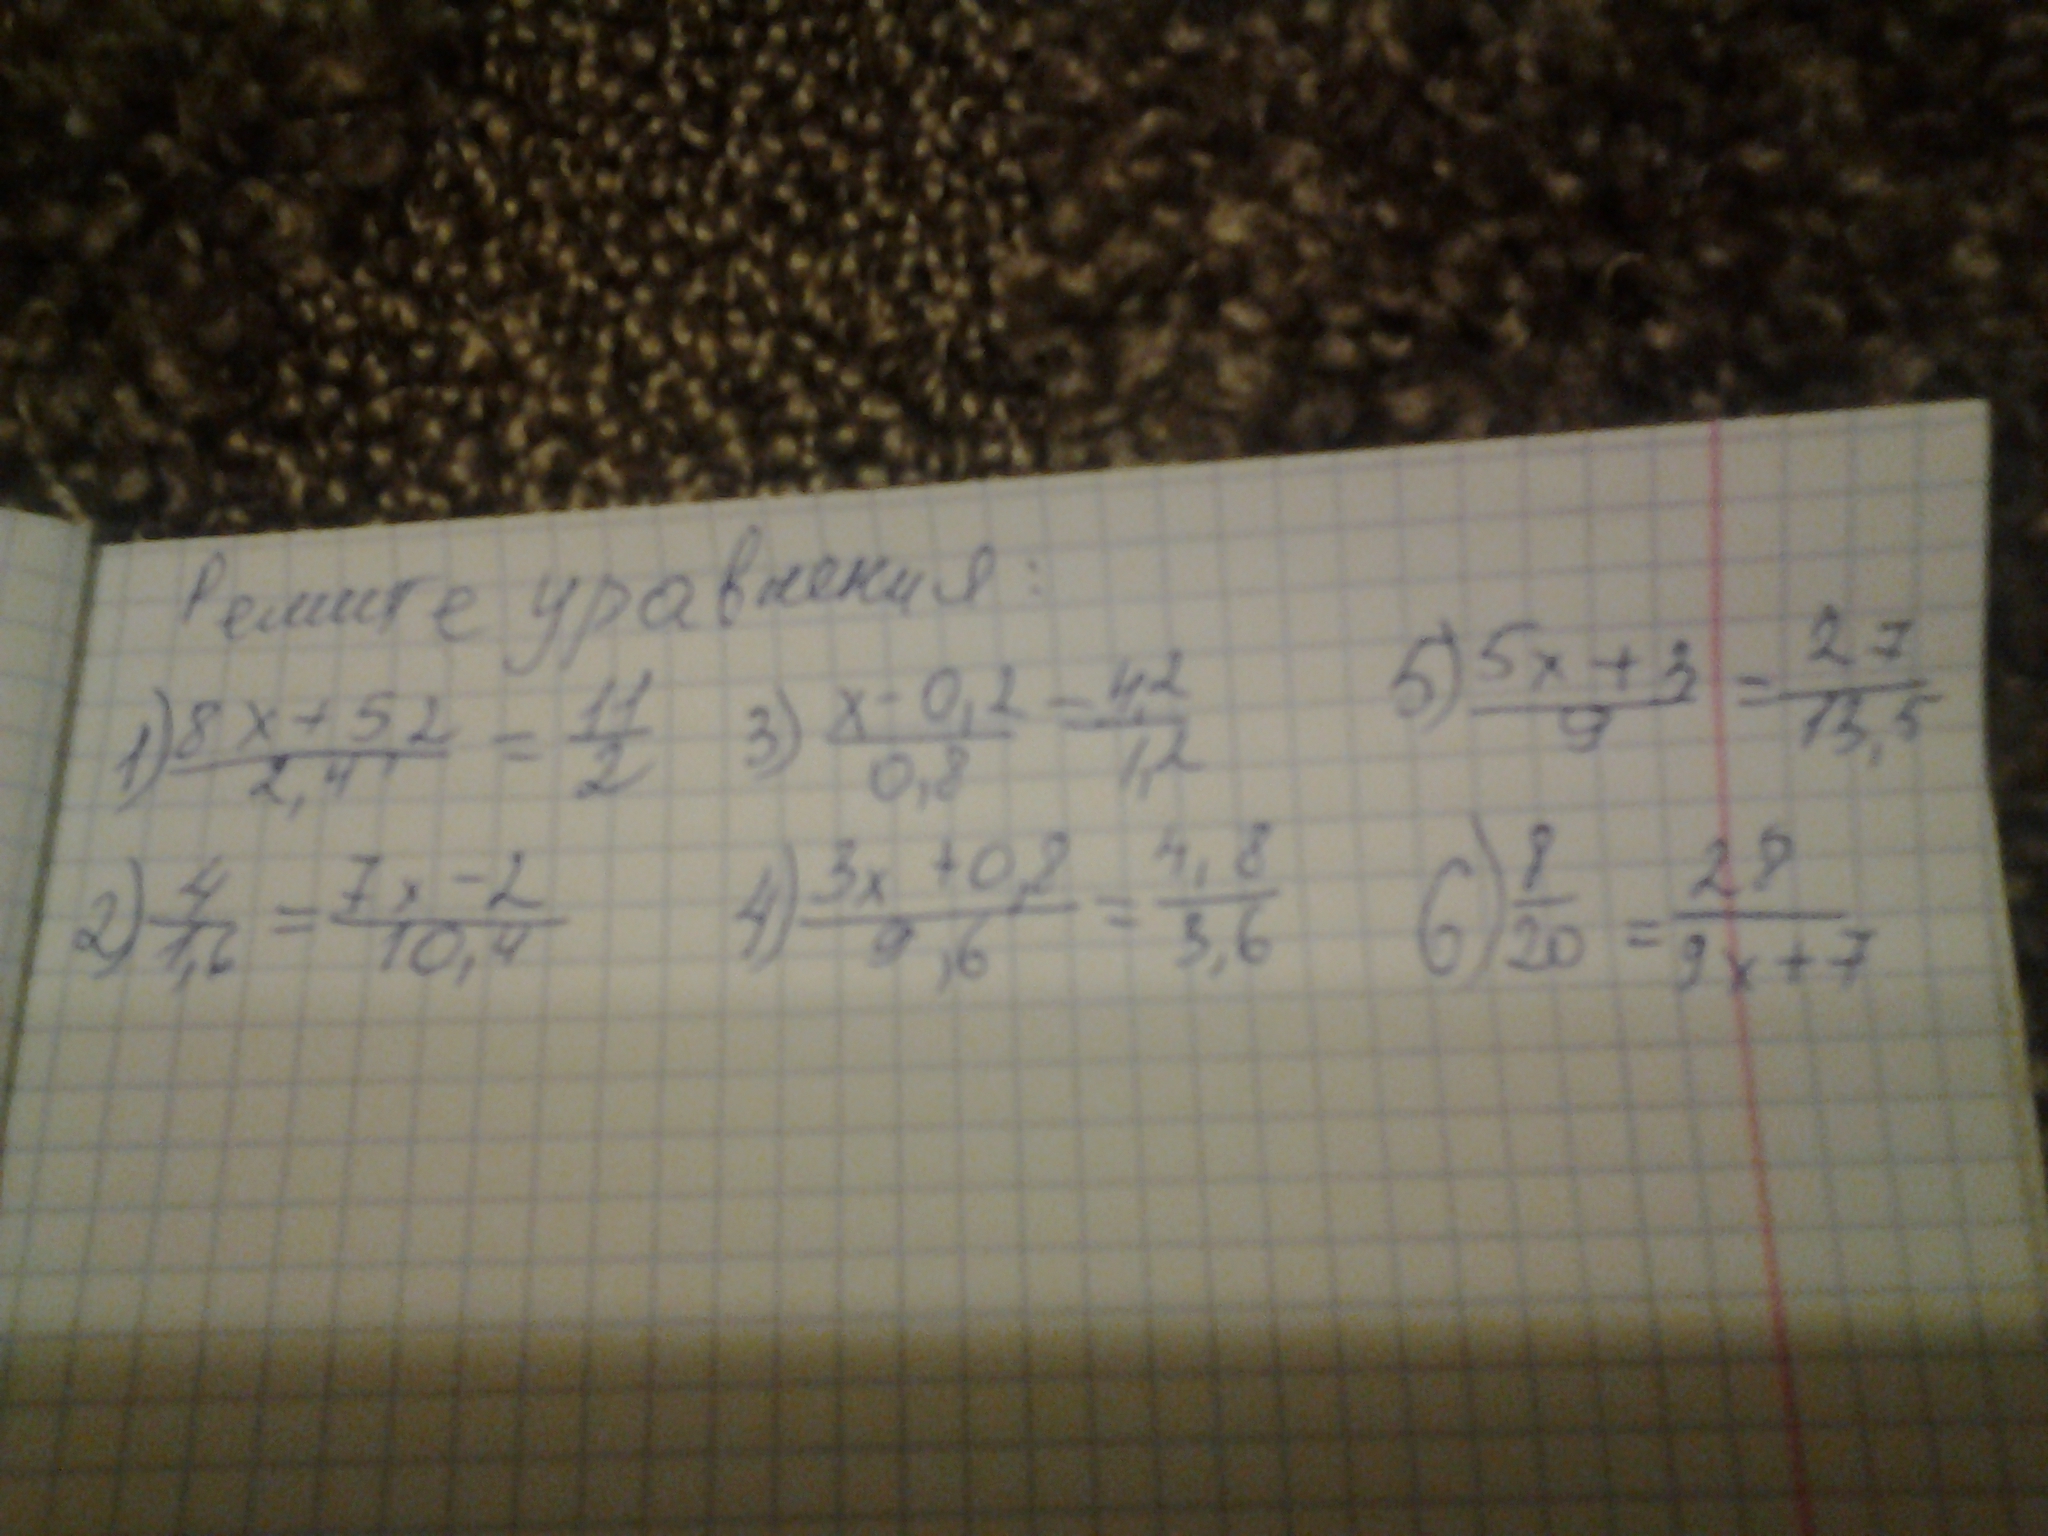 Решите уравнения:
1) (8x+5,2)/2,4 = 11/2 3) (x-0,2)/0,8 = 4,2/1,2 5) (5x+3)/9 = 27/13,5
2) 4/1,6 = (7x-2)/10,4 4) (3x+0,8)/9,6 = 4,8/3,6 6) 8/20 = 28/(9x+7)